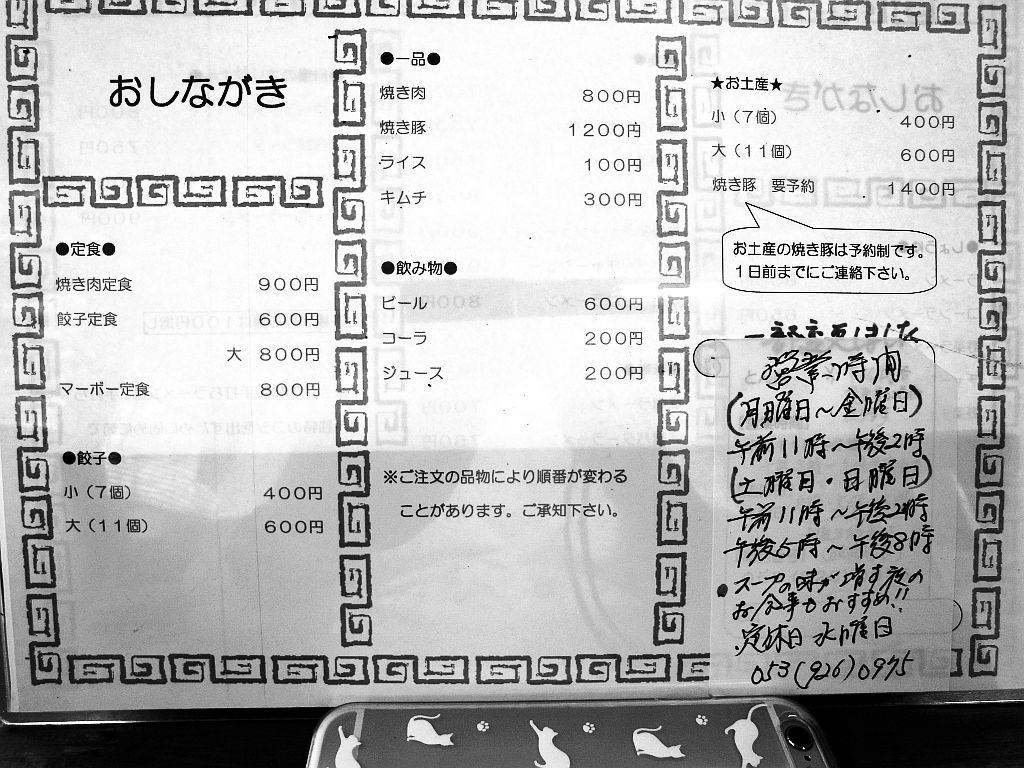 おしながき
●定食●
焼き肉定食 900円
餃子定食 600円
大 800円
マーボー定食 800円
●餃子●
小（7個） 400円
大（11個） 600円
●一品●
焼き肉 800円
焼き豚 1200円
ライス 100円
キムチ 300円
●飲み物●
ビール 600円
コーラ 200円
ジュース 200円
※ご注文の品物により順番が変わる
ことがあります。ご承知下さい。
★お土産★
小（7個） 400円
大（11個） 600円
焼き豚 要予約 1400円
お土産の焼き豚は予約制です。
1日前までにご連絡下さい。
営業時間
(月曜日〜金曜日)
午前11時〜午後2時
(土曜日・日曜日)
午前11時〜午後2時
午後5時〜午後8時
●スープの味が増す夜の
お食事もおすすめ!!
定休日 水曜日
053(926)0975